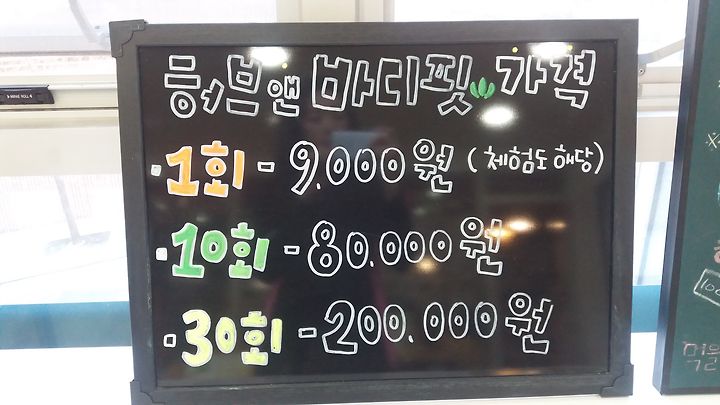 허브앤 바디핏 가격
·1회 - 9.000원 (체험도 해당)
·10회 - 80.000원
·30회 - 200.000원